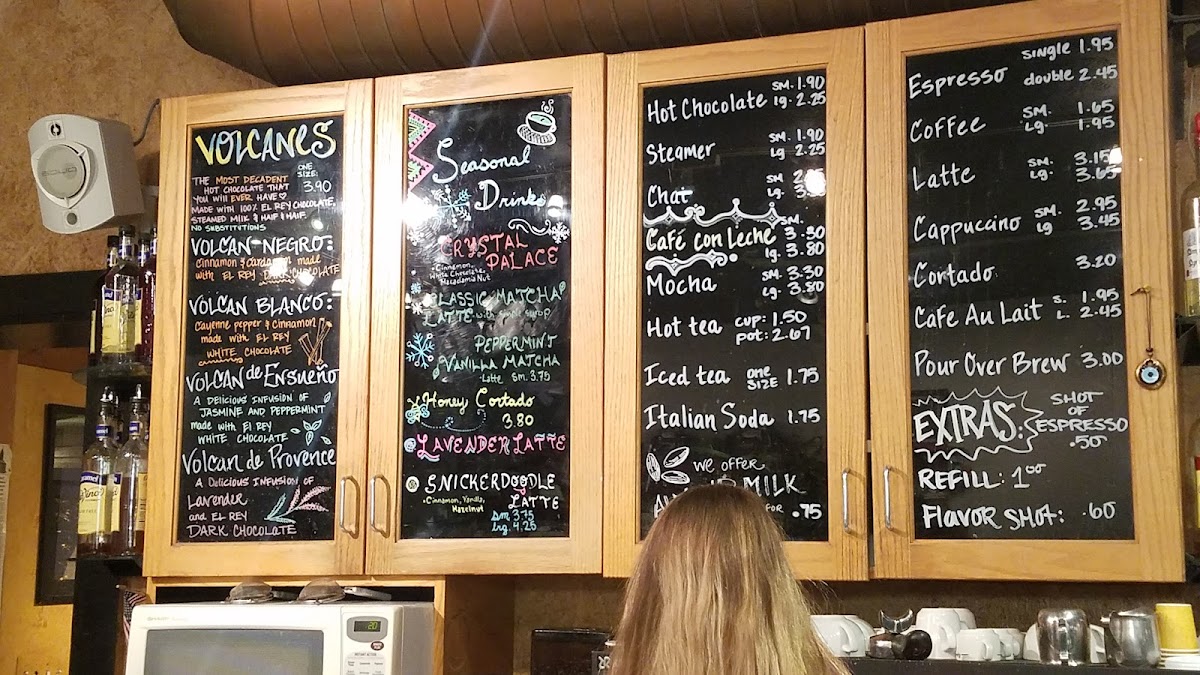 VOLCANES
THE MOST DECADENT
HOT CHOCOLATE THAT
YOU WILL EVER HAVE
MADE WITH 100% EL REY CHOCOLATE,
STEAMED MILK & HALF & HALF
NO SUBSTITUTIONS
ONE
SIZE:
3.90
VOLCAN NEGRO:
Cinnamon & Cardamom made
with EL REY DARK CHOCOLATE
VOLCAN BLANCO:
Cayenne pepper & cinnamon
made with EL REY
WHITE CHOCOLATE
VOLCAN de ENSUEÑO
A DELICIOUS INFUSION OF
JASMINE AND PEPPERMINT
made with El REY
WHITE CHOCOLATE
Volcan de Provence
A Delicious INFUSION OF
Lavender
and EL REY
DARK CHOCOLATE
Seasonal
Drinks
CRYSTAL
PALACE
Cinnamon,
White Chocolate,
Macadamia Nut
CLASSIC MATCHA
LATTE with simple syrup
PEPPERMINT
VANILLA MATCHA
Latte SM. 3.75
Honey Cortado
3.80
LAVENDER LATTE
SNICKERDOODLE
LATTE
Cinnamon, Vanilla,
Hazelnut
SM. 3.75
lrg. 4.25
Hot Chocolate SM. 1.90
lg. 2.25
Steamer SM. 1.90
lg 2.25
Chai SM.
lg.
Café con Leche SM. 3.30
lg. 3.80
Mocha SM. 3.30
lg. 3.80
Hot tea cup: 1.50
pot: 2.67
Iced tea ONE SIZE 1.75
Italian Soda 1.75
WE OFFER
MILK
FOR .75
Espresso single 1.95
double 2.45
Coffee SM. 1.65
lg. 1.95
Latte SM. 3.15
lg. 3.65
Cappuccino SM. 2.95
lg 3.45
Cortado 3.20
Cafe Au Lait S. 1.95
L. 2.45
Pour Over Brew 3.00
EXTRAS: SHOT
OF
ESPRESSO
.50
REFILL: 1.00
FLAVOR SHOT: .60